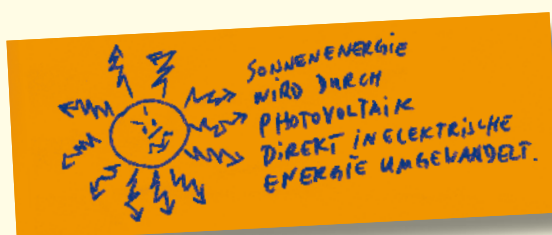 SONNENENERGIE
WIRD DURCH
PHOTOVOLTAIK
DIREKT IN ELEKTRISCHE
ENERGIE UMGEWANDELT.